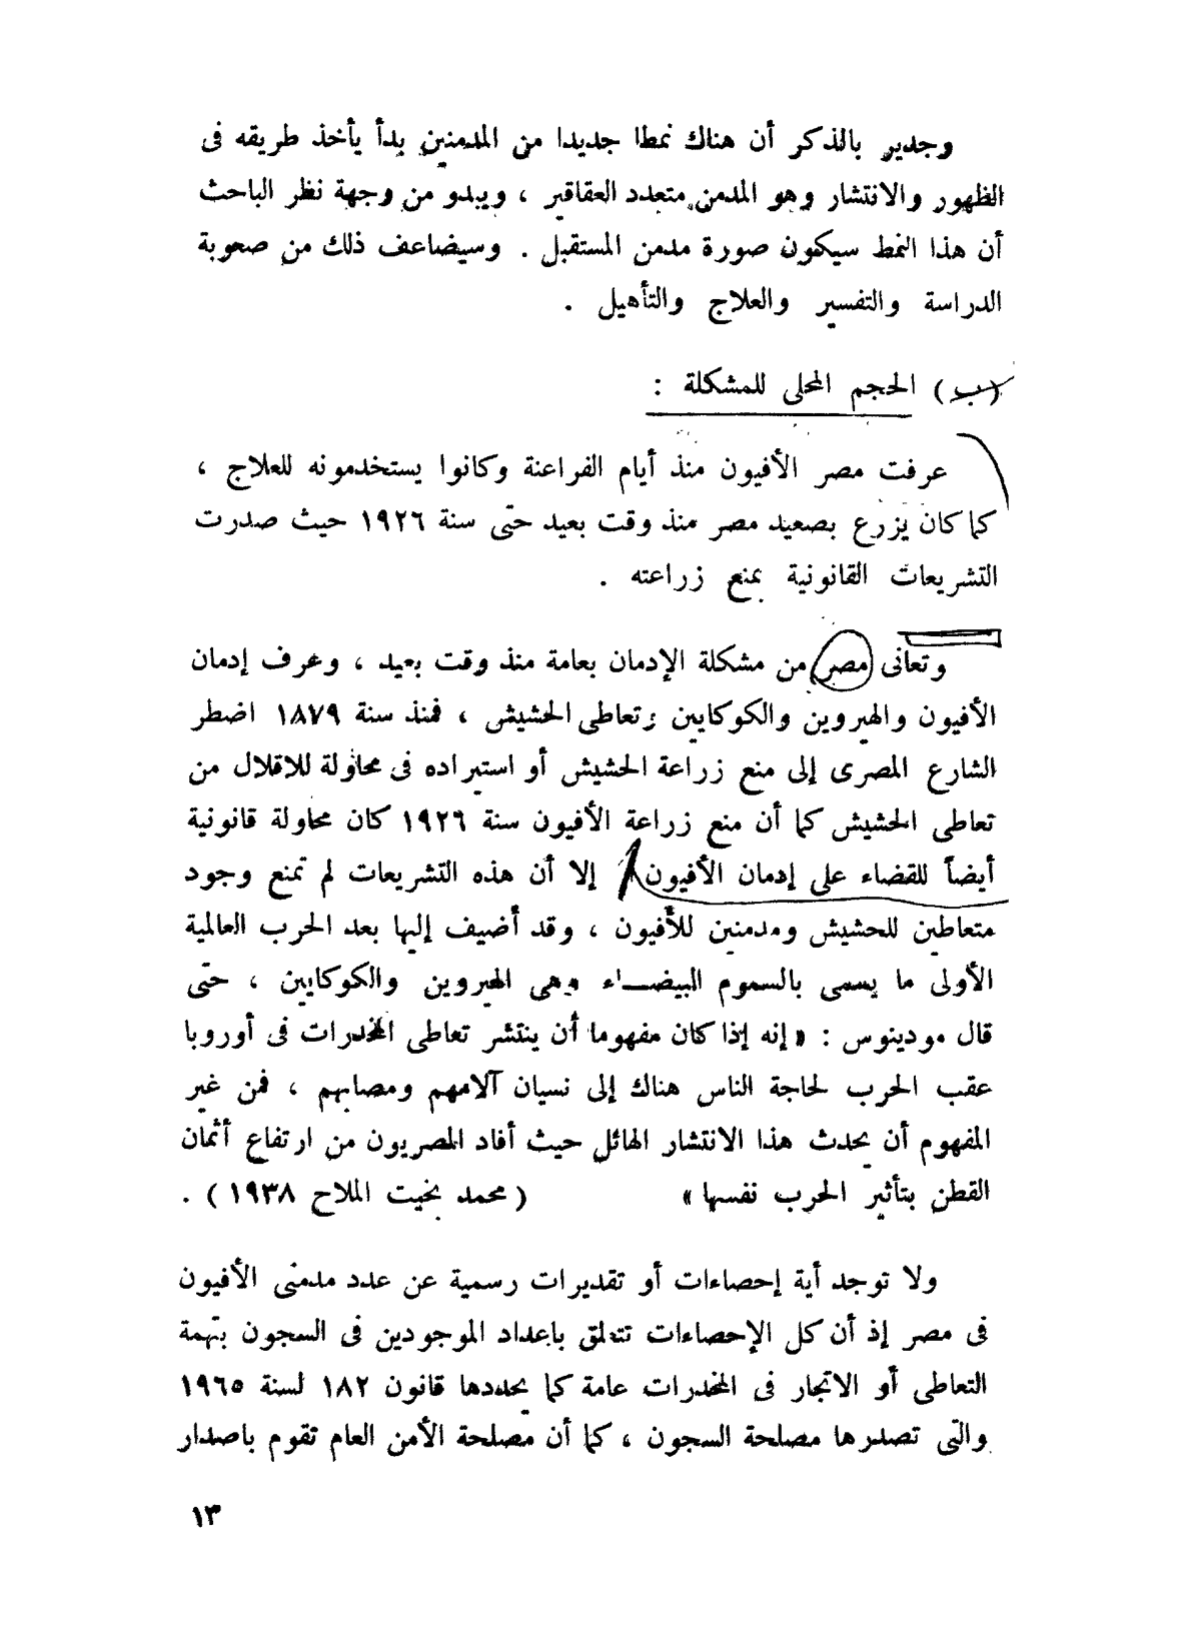 وجدير بالذكر أن هناك نمطا جديدا من المدمنين بدأ يأخذ طريقه فى
الظهور والانتشار وهو المدمن متعدد العقاقير ، ويبدو من وجهة نظر الباحث
أن هذا النمط سيكون صورة مدمن المستقبل . وسيضاعف ذلك من صعوبة
الدراسة والتفسير والعلاج والتأهيل .
(ب) الحجم المحلى للمشكلة :
عرفت مصر الأفيون منذ أيام الفراعنة وكانوا يستخدمونه للعلاج ،
كما كان يزرع بصعيد مصر منذ وقت بعيد حتى سنة ١٩٢٦ حيث صدرت
التشريعات القانونية بمنع زراعته .
وتعانى مصر من مشكلة الإدمان بعامة منذ وقت بعيد ، وعرف إدمان
الأفيون والهيروين والكوكايين وتعاطى الحشيش ، فمنذ سنة ١٨٧٩ اضطر
الشارع المصرى إلى منع زراعة الحشيش أو استيراده فى محاولة للاقلال من
تعاطى الحشيش كما أن منع زراعة الأفيون سنة ١٩٢٦ كان محاولة قانونية
أيضاً للقضاء على إدمان الأفيون إلا أن هذه التشريعات لم تمنع وجود
متعاطين للحشيش ومدمنين للأفيون ، وقد أضيف إليها بعد الحرب العالمية
الأولى ما يسمى بالسموم البيضـــاء وهى الهيروين والكوكايين ، حتى
قال مودينوس : « إنه إذا كان مفهوما أن ينتشر تعاطى المخدرات فى أوروبا
عقب الحرب لحاجة الناس هناك إلى نسيان آلامهم ومصابهم ، فمن غير
المفهوم أن يحدث هذا الانتشار الهائل حيث أفاد المصريون من ارتفاع أثمان
القطن بتأثير الحرب نفسها » ( محمد بخيت الملاح ١٩٣٨ ) .
ولا توجد أية إحصاءات أو تقديرات رسمية عن عدد مدمنى الأفيون
فى مصر إذ أن كل الإحصاءات تتعلق باعداد الموجودين فى السجون بتهمة
التعاطى أو الاتجار فى المخدرات عامة كما يحددها قانون ١٨٢ لسنة ١٩٦٥
والتى تصدرها مصلحة السجون ، كما أن مصلحة الأمن العام تقوم باصدار
١٣